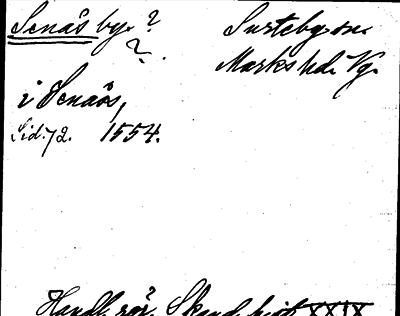 Senås by. ?
?.
Surteby sn.
Marks hd. Vg.
i Senåås,
Sid. 72. 1554.
Handl. rör. Skand. hist. XXIX